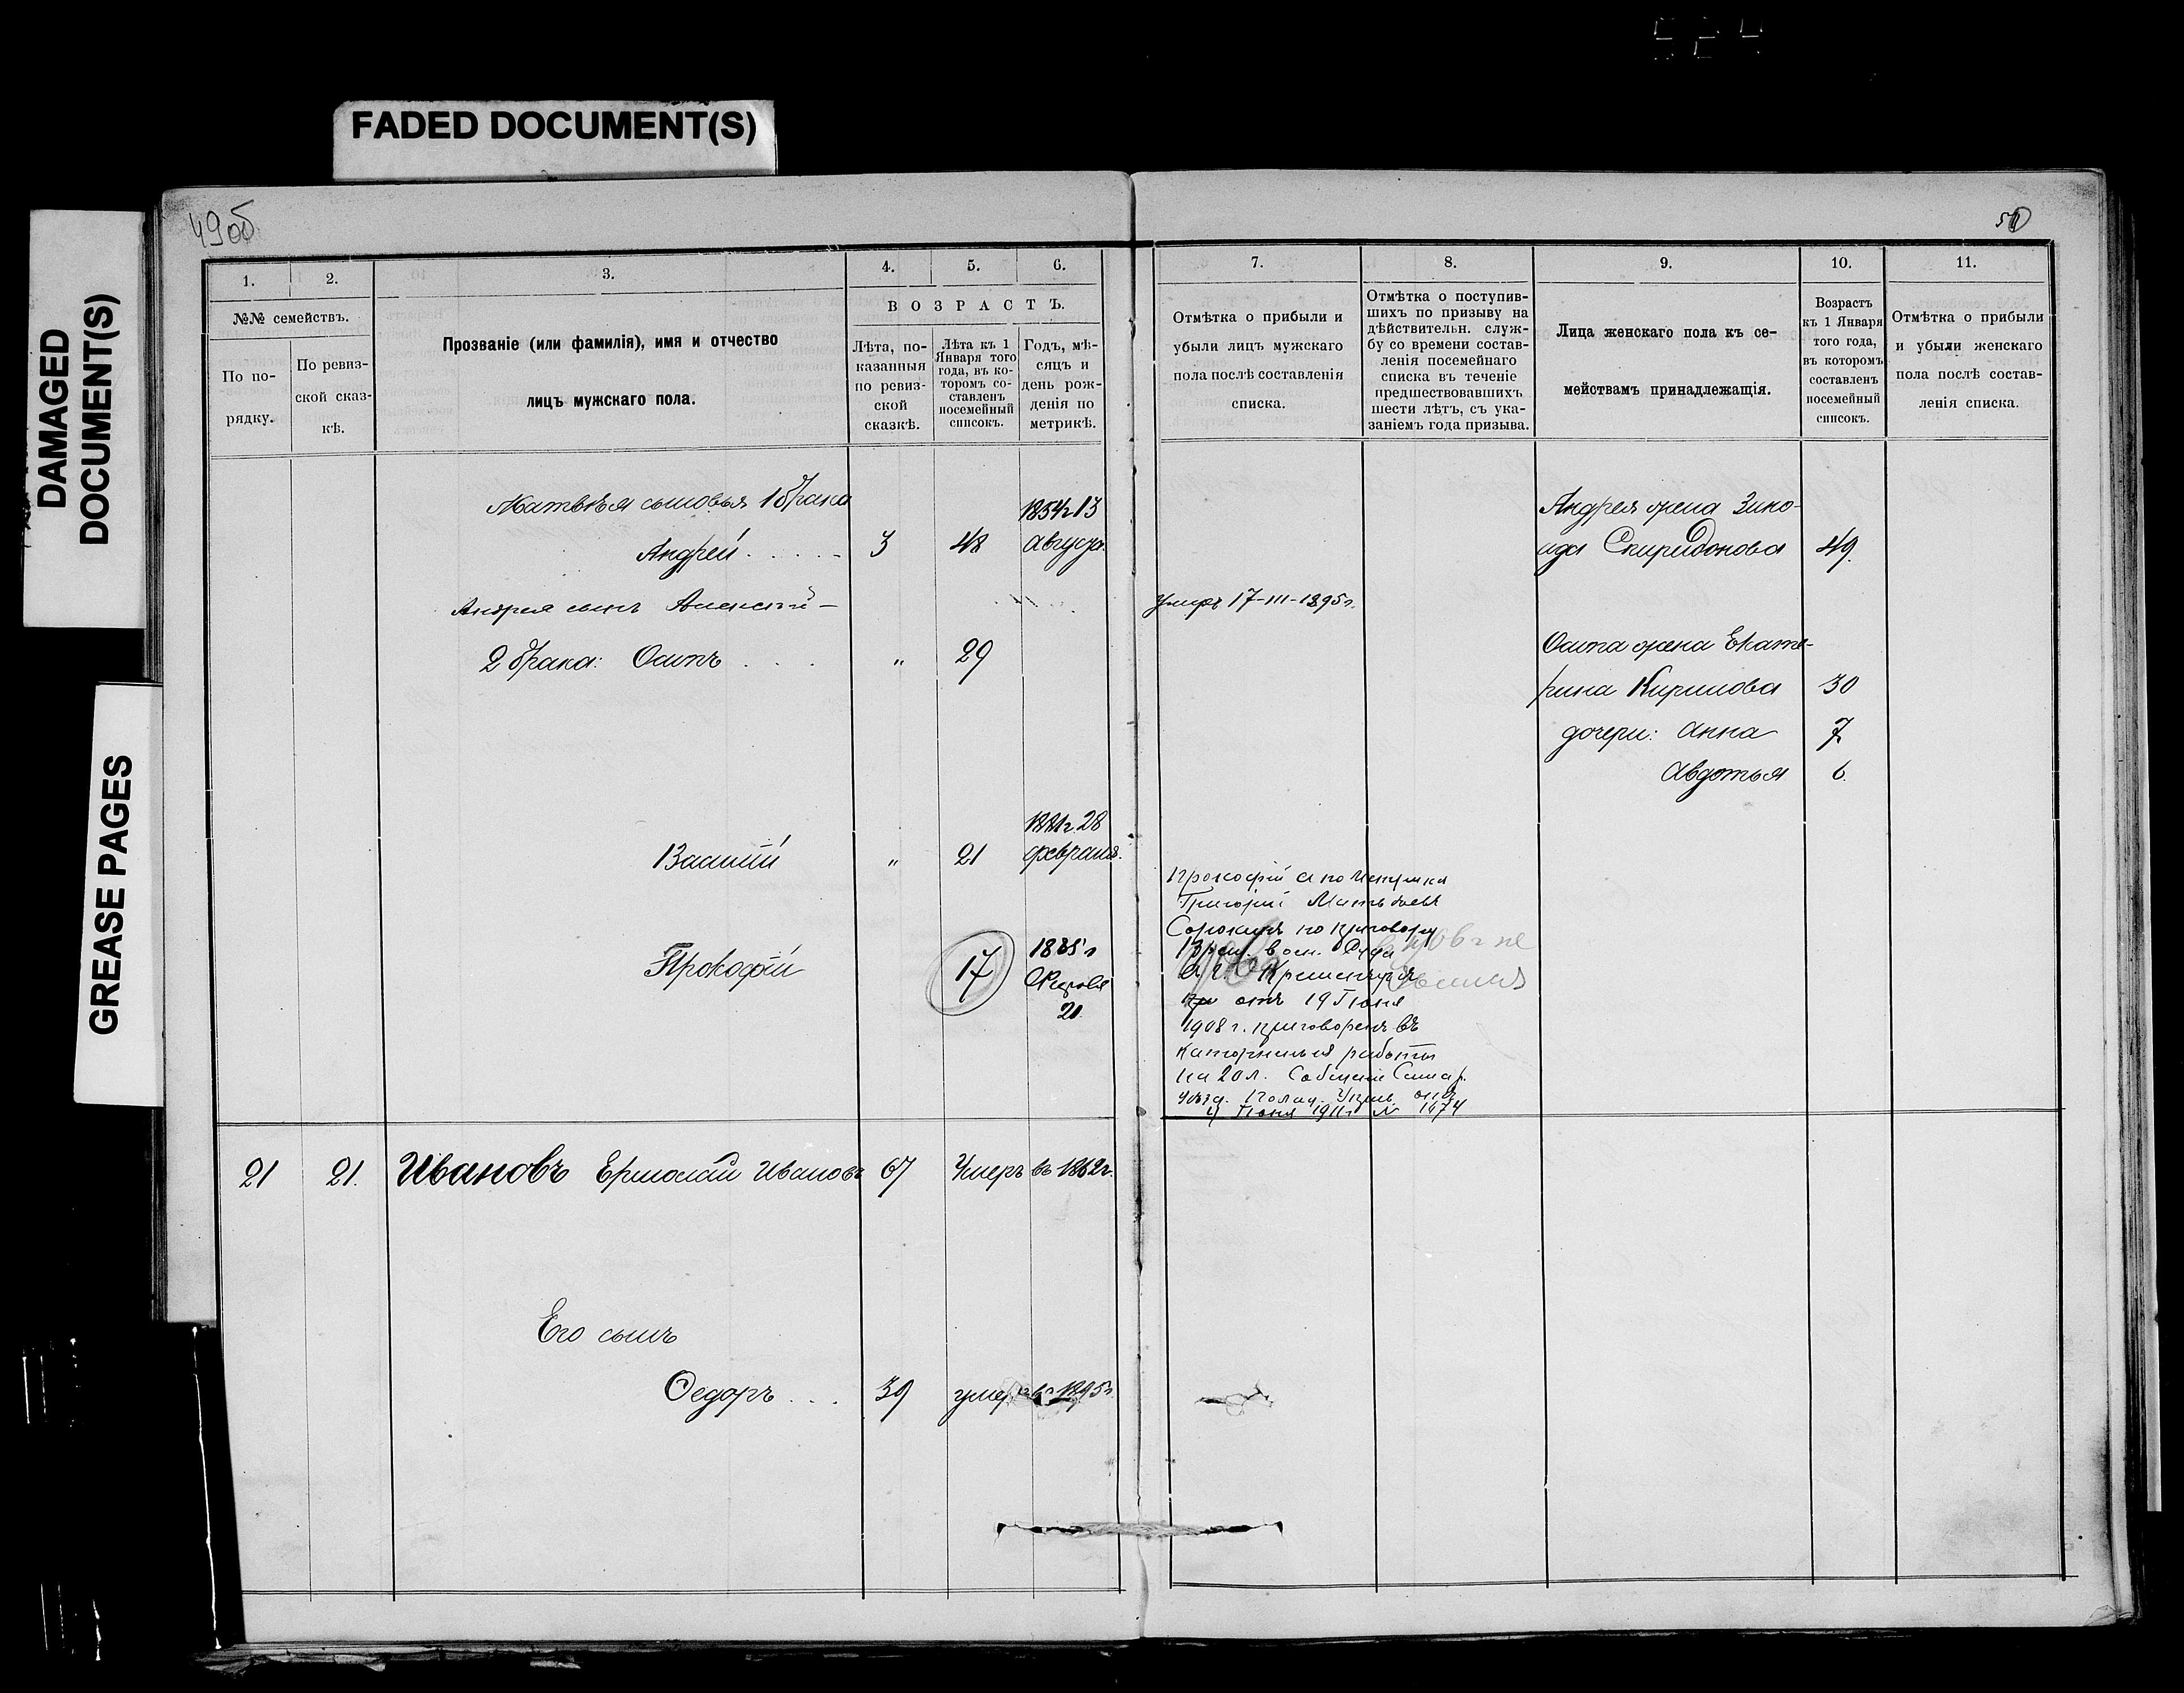 524
FADED DOCUMENT(S)
DAMAGED
DOCUMENT(S)
GREASE PAGES
49об
50
1.
2.
3.
4.
5.
6.
№№ семействъ.
По по-
рядку.
По ревиз-
ской сказ-
кѣ.
Прозваніе (или фамилія), имя и отчество
лицъ мужскаго пола.
ВОЗРАСТЪ.
Лѣта, по-
казанныя
по ревиз-
ской
сказкѣ.
Лѣта къ 1
Января того
года, въ ко-
торомъ со-
ставленъ
посемейный
списокъ.
Годъ, мѣ-
сяцъ и
день рож-
денія по
метрикѣ.
7.
8.
9.
10.
11.
Отмѣтка о прибыли и
убыли лицъ мужскаго
пола послѣ составленія
списка.
Отмѣтка о поступив-
шихъ по призыву на
дѣйствительн. служ-
бу со времени состав-
ленія посемейнаго
списка въ теченіе
предшествовавшихъ
шести лѣтъ, съ ука-
заніемъ года призыва.
Лица женскаго пола къ се-
мействамъ принадлежащія.
Возрастъ
къ 1 Января
того года,
въ которомъ
составленъ
посемейный
списокъ.
Отмѣтка о прибыли
и убыли женскаго
пола послѣ состав-
ленія списка.
Матвѣя сыновья 1 брака
Андрей 3 48 1854г 13
Августа
Андрея жена Зино-
ида Спиридонова 49.
Андрея сынъ Алексѣй –
Умеръ 17-III-1895г.
2 брака: Осипъ " 29
Осипа жена Екате-
рина Кирилова 30
дочери: Анна 7
Авдотья 6.
Василій " 21 1881г. 28
февраля.
Прокофій 17 1885 г
Февраля
21.
Прокофій а по
Григорій Матвѣевъ
Сорокинъ по приговору
Врем. воен. Суда
въ г.
отъ 19 Іюня
1908 г. приговоренъ въ
каторжныя работы
на 20 л. Самар.
уѣзд. Полиц. Управ. отъ
4 Іюня 1911г № 1674
21 21. Ивановъ Ермолай Ивановъ 67 Умеръ въ 1862г.
Его сынъ
Ѳедоръ 39 умеръ въ 1895г.